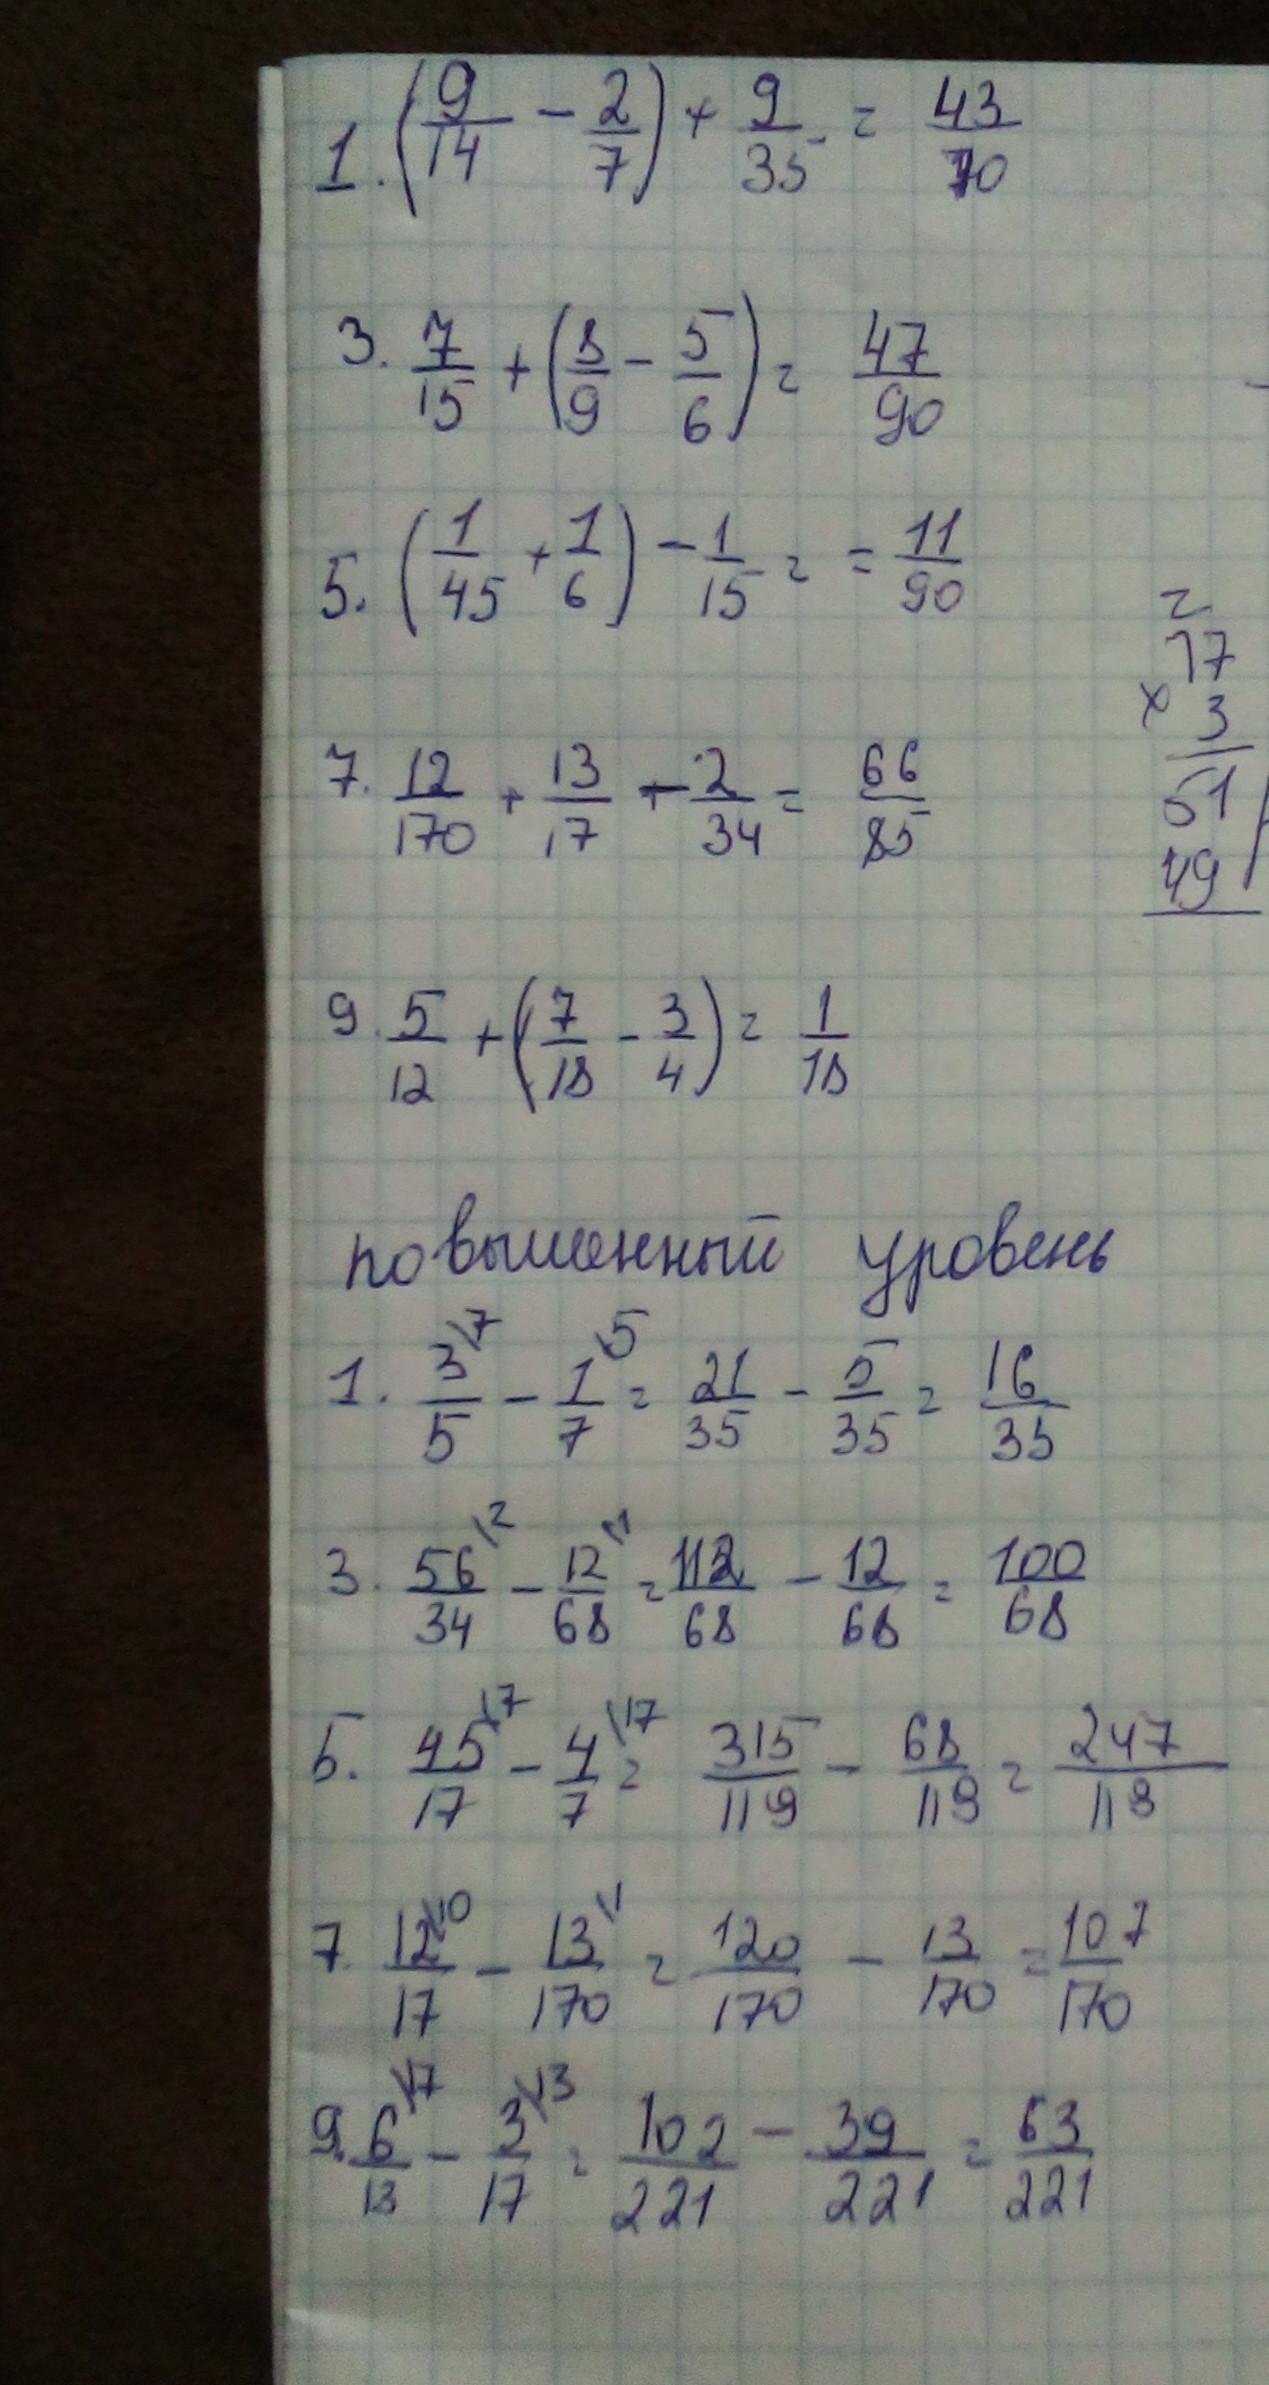 1. (9/14 - 2/7) + 9/35 = 43/70
3. 7/15 + (8/9 - 5/6) = 47/90
5. (1/45 + 1/6) - 1/15 = = 11/90
2
17
× 3
51
49
7. 12/170 + 13/17 - 2/34 = 66/85
9. 5/12 + (7/18 - 3/4) = 1/18
повышенный уровень
1. 3\7/5 - 1\5/7 = 21/35 - 5/35 = 16/35
3. 56\2/34 - 12\1/68 = 112/68 - 12/68 = 100/68
5. 45\7/17 - 4\17/7 = 315/119 - 68/119 = 247/119
7. 12\10/17 - 13\1/170 = 120/170 - 13/170 = 107/170
9. 6\17/13 - 3\13/17 = 102/221 - 39/221 = 63/221